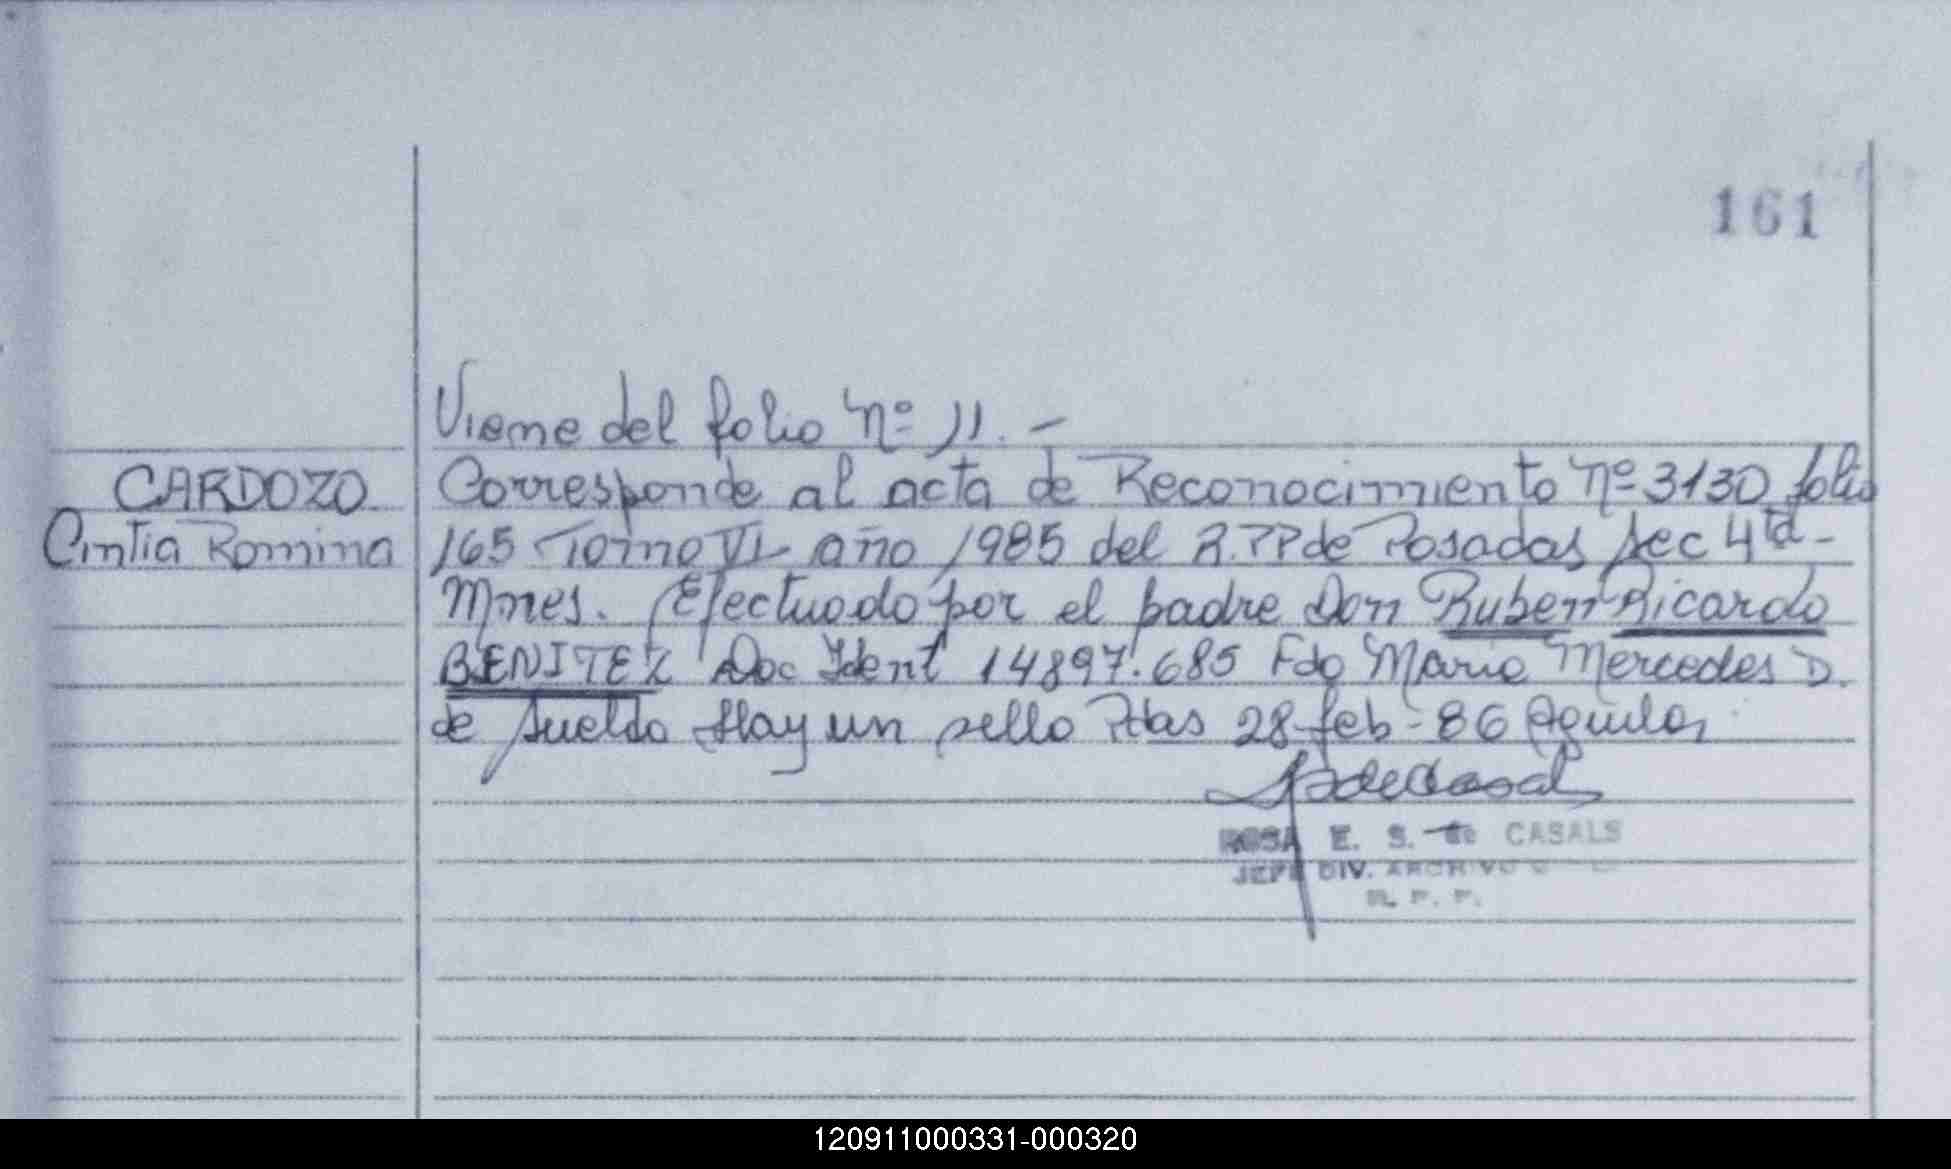 161
Viene del folio Nº 11. -
CARDOZO
Corresponde al acta de Reconocimiento Nº 3130 folio
Cintia Romina
165 Tomo VI año 1985 del R.PP de Posadas Sec 4ta -
Mnes. Efectuado por el padre Don Ruben Ricardo
BENITEZ Doc Ident 14897.685 Fdo Maria Mercedes D.
de Sueldo Hay un sello Pdas 28-feb-86 Aguilar
ROSA E. S. de CASALS
JEFE DIV. ARCHIVO
R. P. P.
120911000331-000320